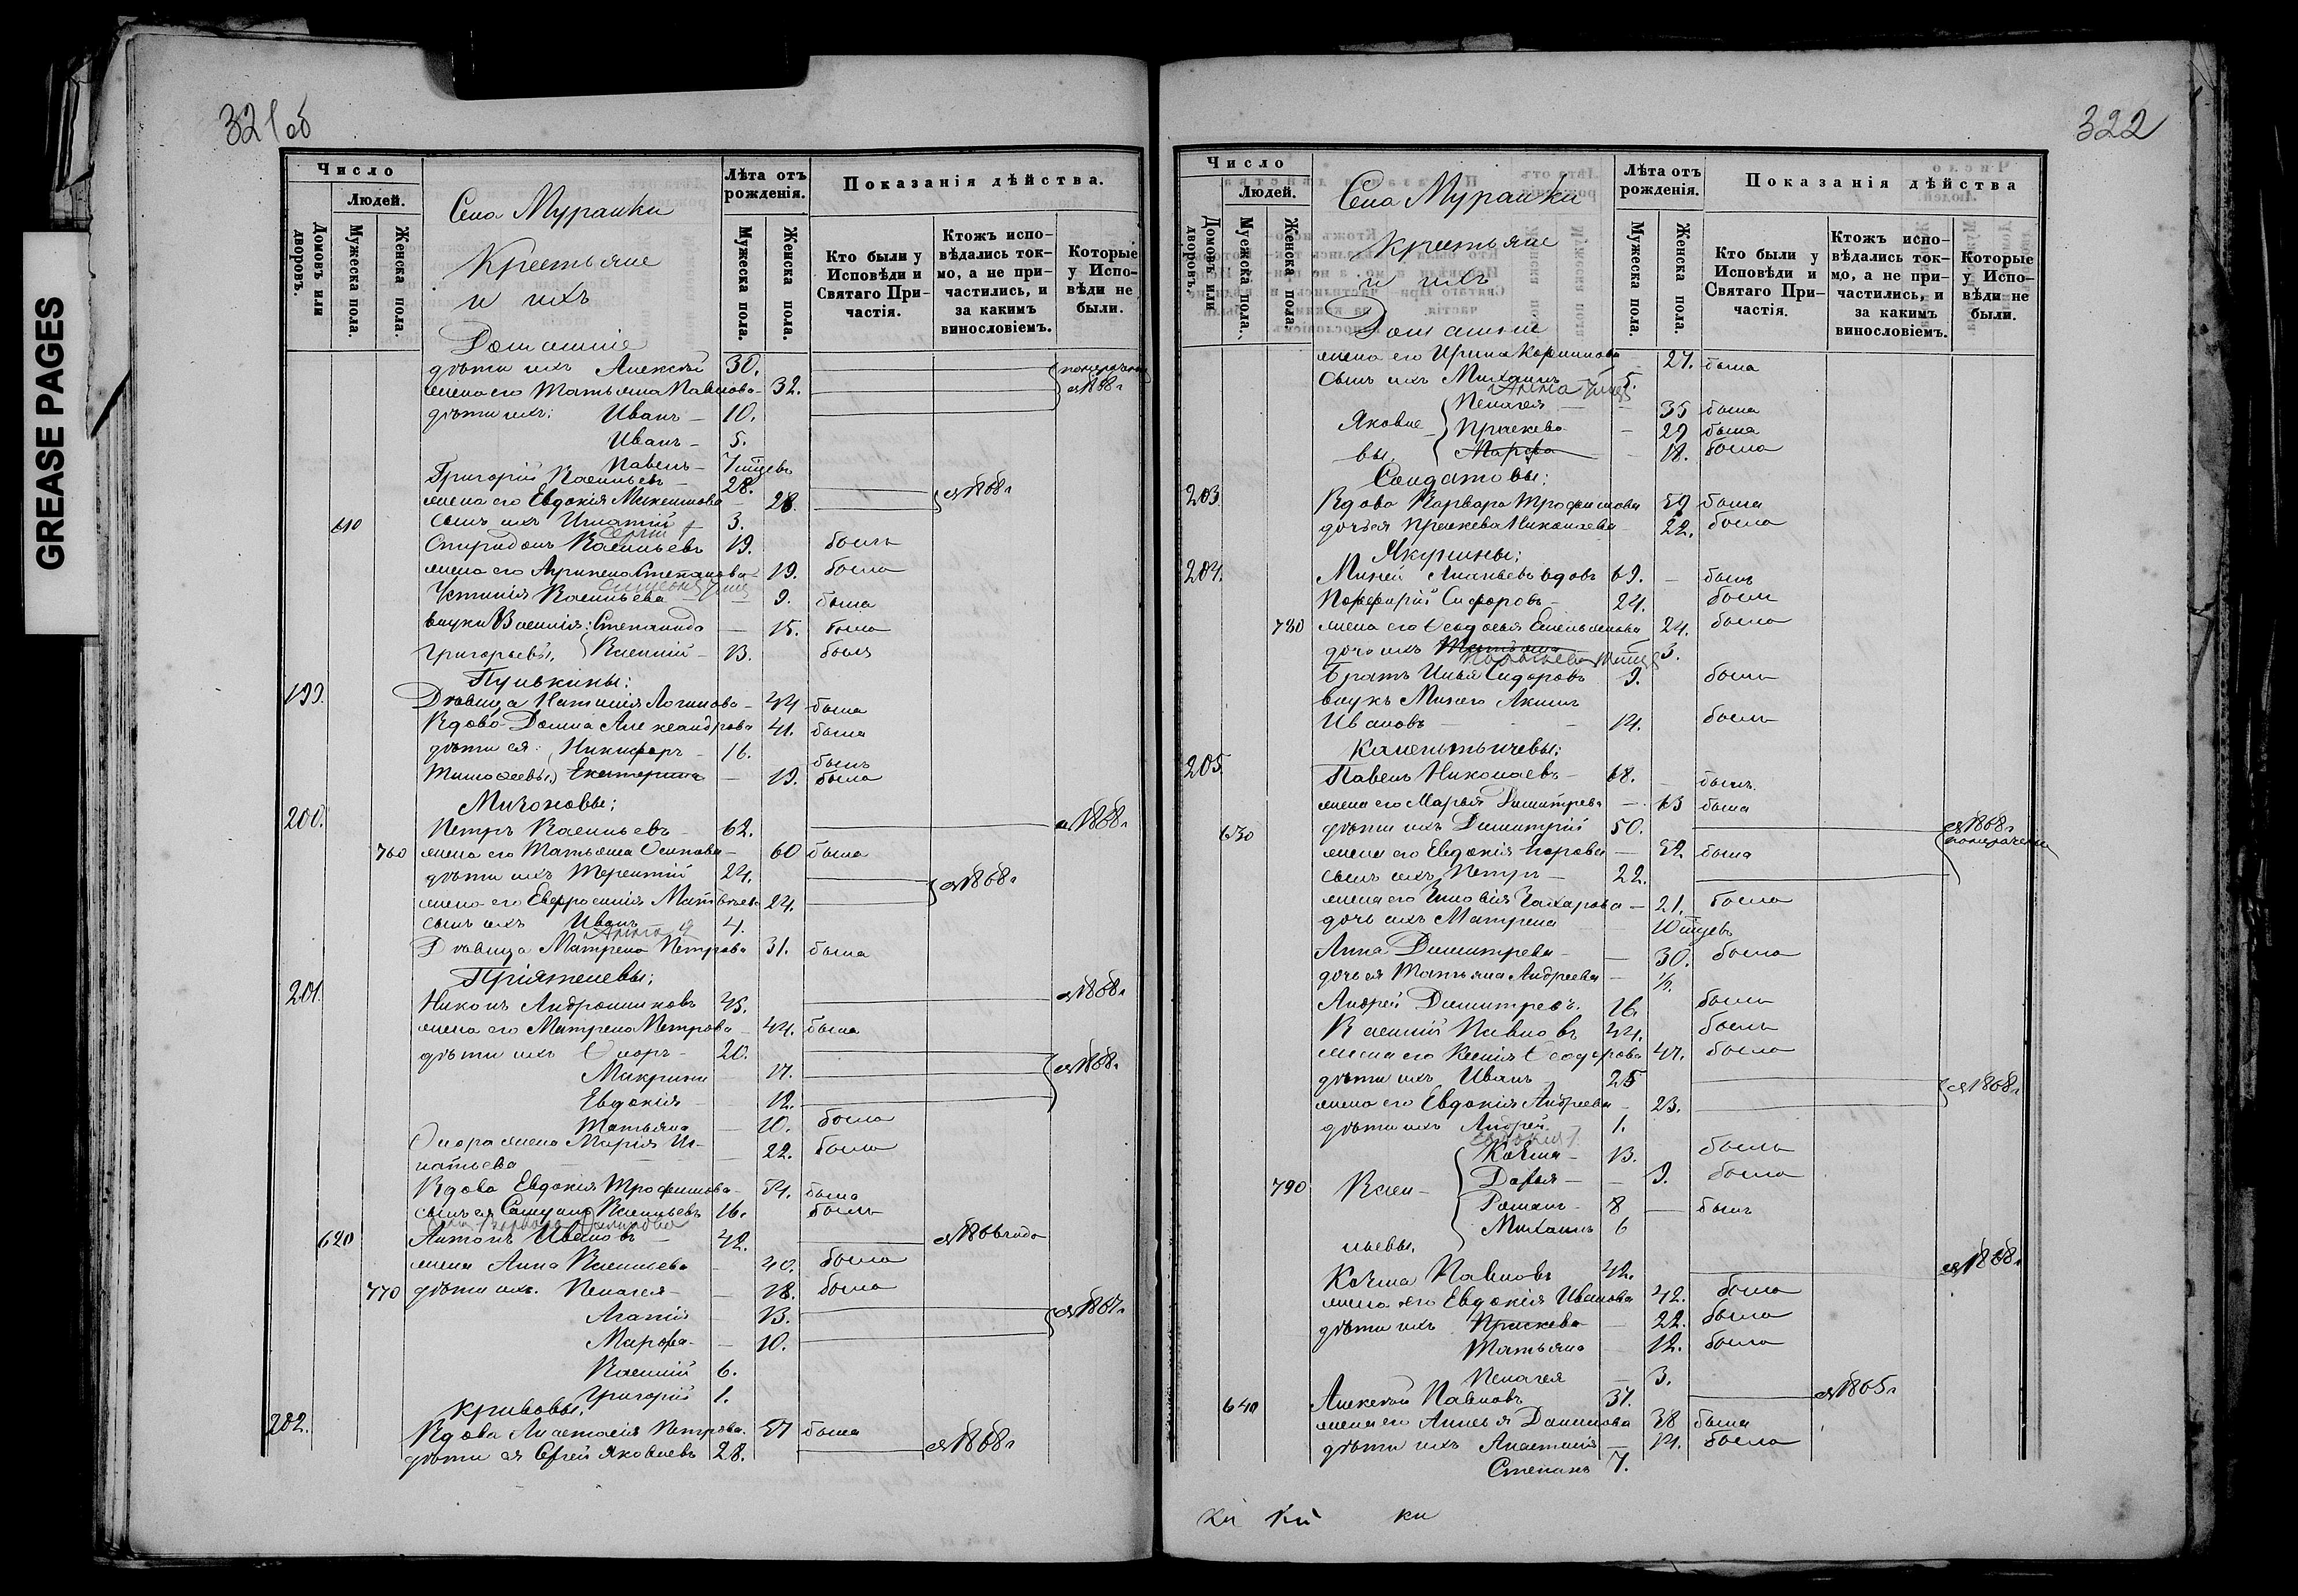 GREASE PAGES
321об
Число
Людей.
Домовъ или дворовъ.
Мужеска пола.
Женска пола.
Села Мурашки
Крестьяне
и ихъ
Домашніе
Лѣта отъ рожденія.
Мужеска пола.
Женска пола.
Показанія дѣйства.
Кто были у Исповѣди и Святаго Причастія.
Ктожъ исповѣдались токмо, а не причастились, и за какимъ винословіемъ.
Которые у Исповѣди не были.
дѣти ихъ Алексѣй 30.
жена его Татьяна Павлова 32. съ 1868г
дѣти ихъ: Иванъ 10.
Иванъ 5.
Павелъ 7 мѣсцевъ
Григорій Васильевъ 28.
жена его Евдокія 28. съ 1868г
610 сынъ ихъ Игнатій 3.
Сергій
Спиридонъ Васильевъ 19. былъ
жена его Агрипена Степанова 19. была
Устинія Васильева 9. была
внуки Василія: Степанида 15. была
Григорьевы, Василій 13. былъ
Пулькины:
199. Дѣвица Наталія Логинова 44 была
Вдова Домна Александрова 41. была
дѣти ея: Никифоръ 16. былъ
Тимоѳеевы, Екатерина 19. была
200. Петръ Васильевъ 62. съ 1868г
760 жена его Татьяна Осипова 60 была
дѣти ихъ Терентій 24. съ 1868г
жена его Евфросинія Матвѣева 24.
сынъ ихъ Иванъ 4.
Анна
Дѣвица Матрена Петрова 31. была
Пріятелевы:
201. Никонъ Андрониковъ 45. съ 1868г
жена его Матрена Петрова 44. была
дѣти ихъ Флоръ 20.
Макрина 17. съ 1868г
Евдокія 12.
Татьяна 10. была
Флора жена Марія Иг-
натьева 22. была
Вдова Евдокія Трофимова 54. была
сынъ ея Самуилъ Васильевъ 16. былъ
620 Антонъ Ивановъ 42. съ 1866 года
жена Анна Васильева 40. была
770 дѣти ихъ. Пелагея 18. была
Агапія 13. съ 1867г
Марфа 10.
Василій 6.
Григорій 1.
Кривовы,
202. Вдова Анастасія Петрова 57 была
дѣти ея Сергѣй Яковлевъ 28. съ 1868г
322
Число
Людей.
Домовъ или дворовъ.
Мужеска пола.
Женска пола.
Села Мурашки
Крестьяне
и ихъ
Домашніе
Лѣта отъ рожденія.
Мужеска пола.
Женска пола.
Показанія дѣйства
Кто были у Исповѣди и Святаго Причастія.
Ктожъ исповѣдались токмо, а не причастились, и за какимъ винословіемъ.
Которые у Исповѣди не были.
жена его Ирина Корнилова 27. была
сынъ ихъ Михаилъ 5.
Анна
Пелагея 35 была
Яковле- Праскева 29 была
вы, Марфа 18. была
Солдатовы:
203. Вдова Варвара Трофимова 59 была
дочь ея Праскева Николаева 22. была
Якунины:
204. Миней Ананьевъ вдовъ 69. былъ
Порфирій Сидоровъ 24. былъ
780 жена его Ѳеодосія Емельянова 24. была
дочь ихъ Татьяна 3.
Братъ Илья Сидоровъ 9. былъ
внукъ Минея Акимъ
Ивановъ 14. былъ
205. Павелъ Николаевъ 68. былъ.
жена его Марья Димитрева 63 была
630 дѣти ихъ Димитрій 50. съ 1868г
жена его Евдокія Егорова 52 была
сынъ ихъ Петръ 22.
жена его Зиновія Захарова 21. была
дочь ихъ Матрена 10 мѣсцевъ
Анна Димитрева 30. была
дочь ея Татьяна Андреева ½.
Андрей Димитревъ 16. былъ
Василій Павловъ 44. былъ
жена его Ксенія Ѳеодорова 47. была
дѣти ихъ Иванъ 25 съ 1868г
жена его Евдокія Андреева 23.
дѣти ихъ Андрей 1.
Козма 13. былъ
790 Васи- Дарья 9. была
Романъ 8 былъ
Михаилъ 6
льевы,
Козма Павловъ 42. съ 1868г
жена его Евдокія Иванова 42. была
дѣти ихъ Праскева 22. была
Татьяна 12. была
Пелагея 3.
640 Алексѣй Павловъ 37. съ 1865г
жена его Анисья Данилова 38 была
дѣти ихъ Анастасія 14. была
Степанъ 7.